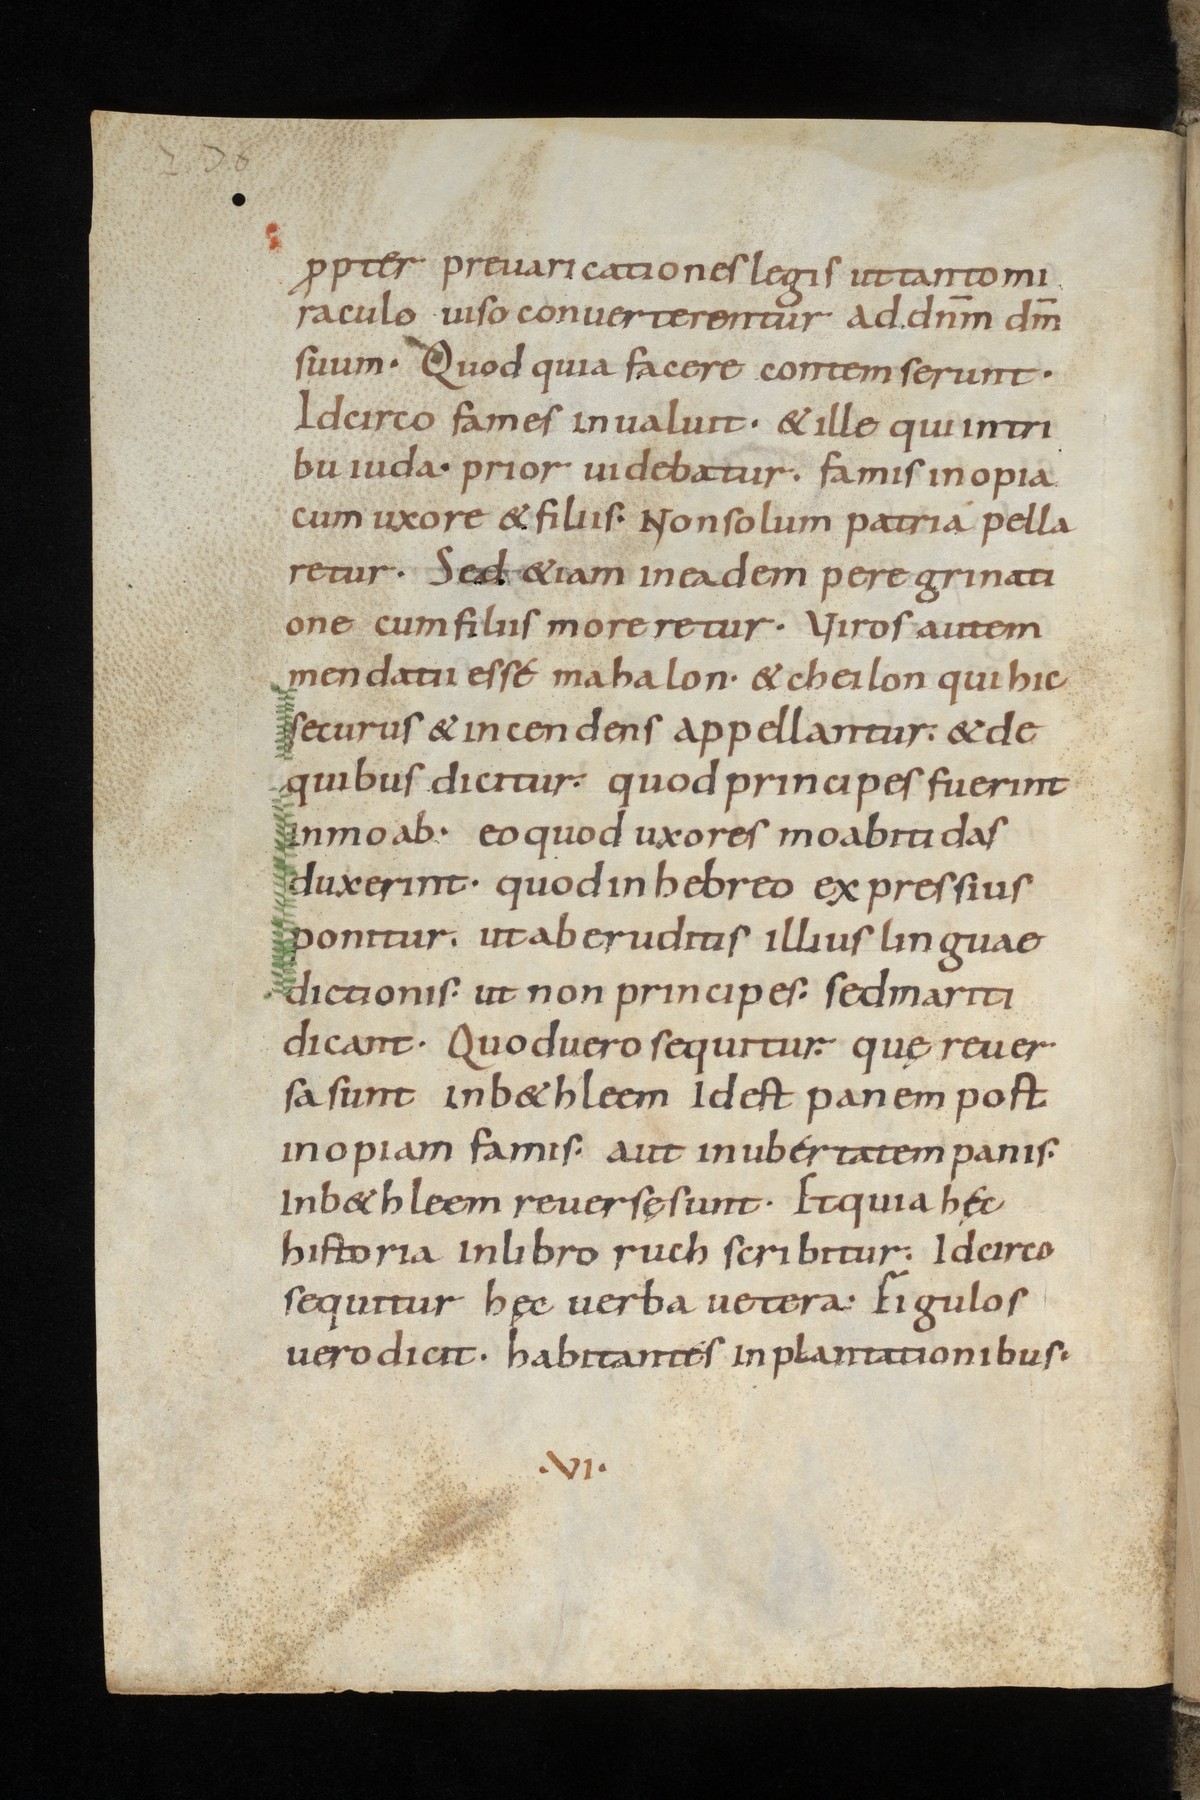 ꝓpter preuaricationes legis ut tanto mi
raculo uiso conuerterentur ad dn̄m dm̄
suum· Quod quia facere contemserunt·
Idcirco fames inualuit· & ille qui in tri
bu iuda· prior uidebatur· famis inopia
cum uxore & filiis· Non solum patria pella
retur· Sed &iam in eadem peregrinati
one cum filiis moreretur· Viros autem
mendatii esse mahalon· & cheilon qui hic
securus & incendens appellantur· & de
quibus dicitur· quod principes fuerint
in moab· eo quod uxores moabitidas
duxerint· quod in hebreo expressius
ponitur· ut ab eruditis illius linguae
dictionis· ut non principes· sed mariti
dicant· Quod uero sequitur· quę reuer
sa sunt in b&hleem Id est panem post
inopiam famis· aut in ubertatem panis·
In b&hleem reuersę sunt· Et quia hęc
historia in libro ruth scribitur· Idcirco
sequitur hęc uerba uetera· Figulos
uero dicit· habitantes in plantationibus·
·VI·